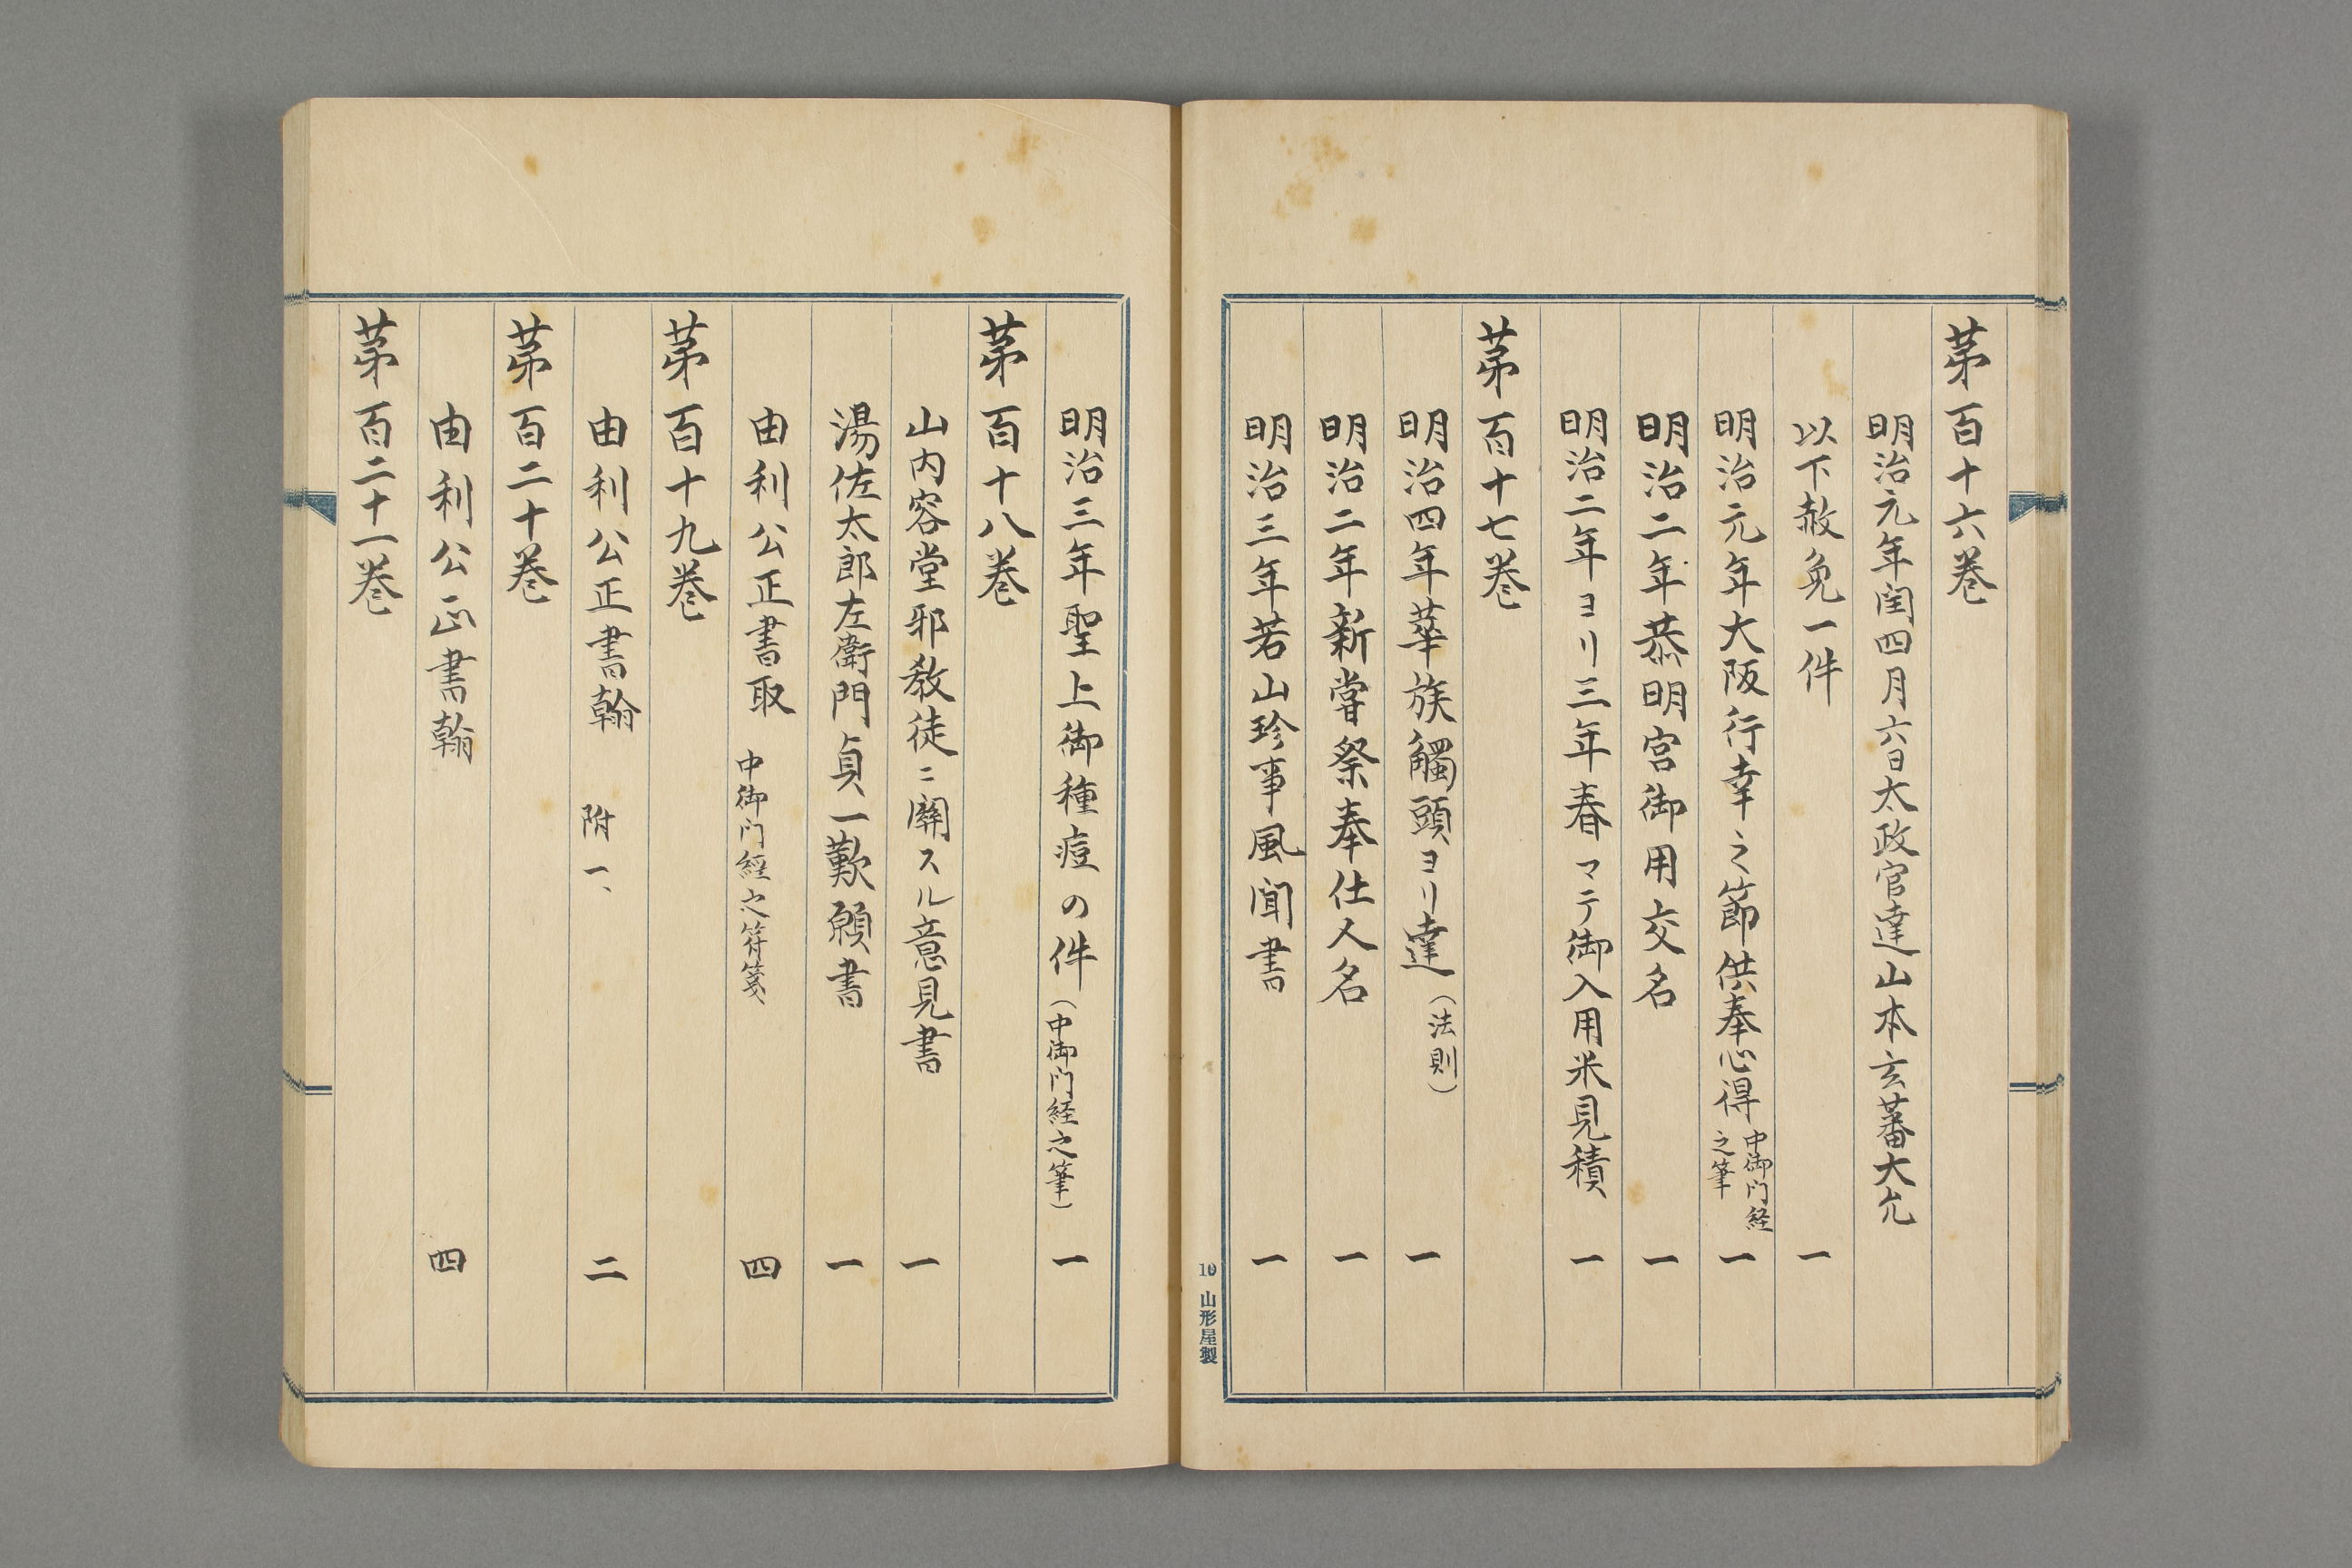 第百十六巻
明治元年閏四月六日太政官達山本玄蕃大允
以下赦免一件 一
明治元年大阪行幸之節供奉心得 中御門経之筆 一
明治二年恭明宮御用交名 一
明治二年ヨリ三年春マテ御入用米見積 一
第百十七巻
明治四年華族觸頭ヨリ達（法則） 一
明治二年新嘗祭奉仕人名 一
明治三年若山珍事風聞書 一
10 山形屋製
明治三年聖上御種痘の件（中御門経之筆） 一
第百十八巻
山内容堂邪教徒ニ關スル意見書 一
湯佐太郎左衛門貞一歎願書 一
由利公正書取 中御门経之符箋、 四
第百十九巻
由利公正書翰 附一、 二
第百二十巻
由利公正書翰 四
第百二十一巻